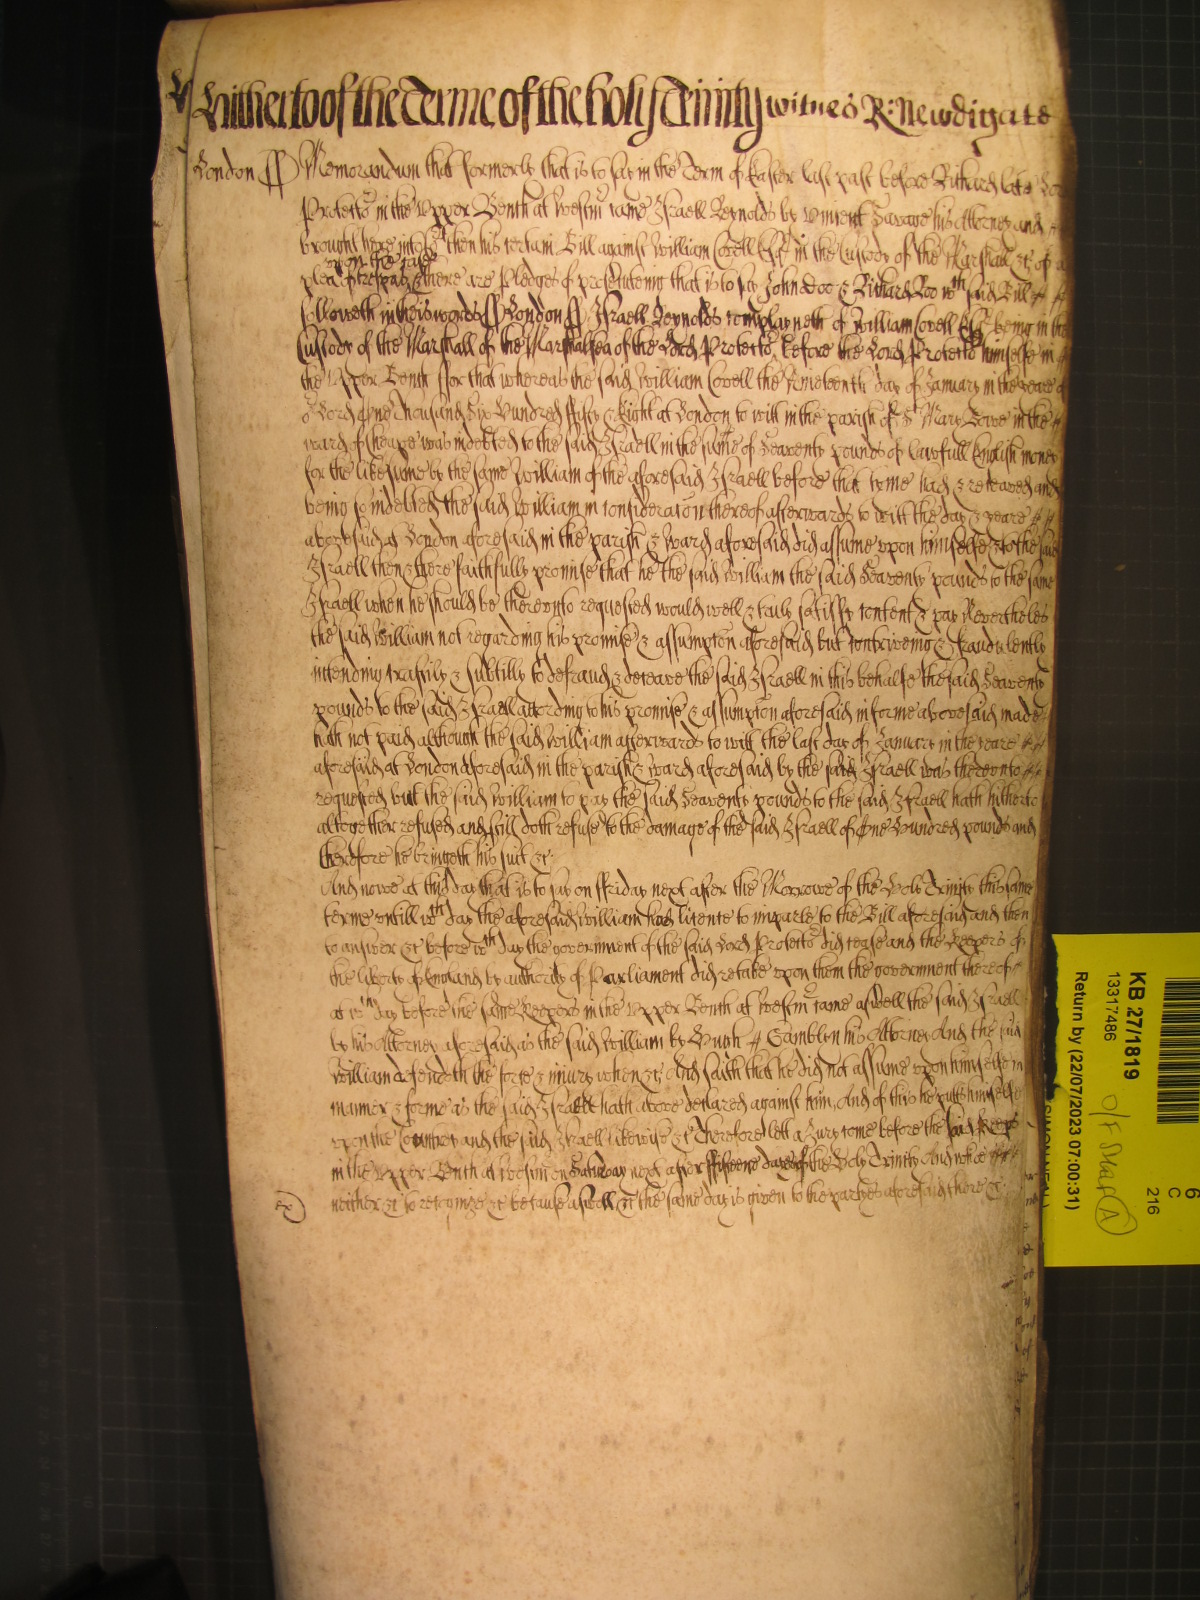 Hitherto of the Terme of the holy Trinity witnes R: Newdigate
London ss Memorandum that formerly that is to say in the Term of Easter last past before Richard late Lo
Protector in the Upper Bench at Westm came Israell Reynolds by Vincent his Attorney and
brought here into Co^rt then his certain Bill against William Covell Esq^r in the Custody of the Marshall &c of a
upon the case
plea of trespas & there are Pledges of prosecuteing that is to say John doo & Richard Roo w^ch said Bill
followeth in theis words ss London ss Israell Reynolds complayneth of William Covell Esq^r being in the
Custody of the Marshall of the Marshalsea of the Lord Protector before the Lord Protector himselfe in
the Upper Bench ffor that whereas the said William Covell the Nineteenth day of January in the yeare of
o^r Lord One thousand Six Hundred ffifty & Eight at London to witt in the parish of S^t Mary Bowe in the
ward of Cheape was indebted to the said Israell in the sume of Seaventy pounds of lawfull English money
for the like sume by the same William of the aforesaid Israell before that tyme had & receaved and
being so indebted the said William in consideracon thereof afterwards to witt the day & yeare
abovesaid at London aforesaid in the parish & Ward aforesaid did assume upon himselfe & to the said
Israell then & there faithfully promise that he the said William the said Seaventy pounds to the same
Israell when he should be thereunto requested would well & truly satisfy content & pay Neverthelés
the said William not regarding his promise & assumpcon aforesaid but contriveing & fraudulently
intending craftily & subtilly to defraud & deceave the said Israell in this behalfe the said Seaventy
pounds to the said Israell according to his promise & assumpcon aforesaid in forme abovesaid made
hath not paid although the said William afterwards to witt the last day of January in the yeare
aforesaid at London aforesaid in the parish & ward aforesaid by the said Israell was thereunto
requested but the said William to pay the said Seaventy pounds to the said Israell hath hitherto
altogether refused and still doth refuse to the damage of the said Israell of One Hundred pounds and
therefore he bringeth his suit &c
And nowe at this day that is to say on ffriday next after the Morrowe of the Holy Trinity this same
terme untill w^ch day the aforesaid William had licence to imparle to the Bill aforesaid and then
to answer &c before w^ch day the government of the said Lord Protector did cease and the Keepers of
the liberty of England by authority of Parliament did retake upon them the government thereof
at w^ch day before the same Keepers in the Upper Bench at Westm came aswell the said Israell
by his Attorney aforesaid as the said William by Hugh Gamblyn his Attorney And the said
William defendeth the force & iniury when &c And saith that he did not assume upon himselfe in
manner & forme as the said Israell hath above declared against him And of this he putts himselfe
upon the Countrey and the said Israell likewise &c Therefore lett a Jury come before the said Keeps
in the Upper Bench at Westm on Saturday next after ffifteene dayes of the Holy Trinity And whoe
neither &c to recognize &c because aswell &c the same day is given to the partyes aforesaid there &c
KB 27/1819
13317486
Return by (22/07/2023 07:00:31)
C
216
6